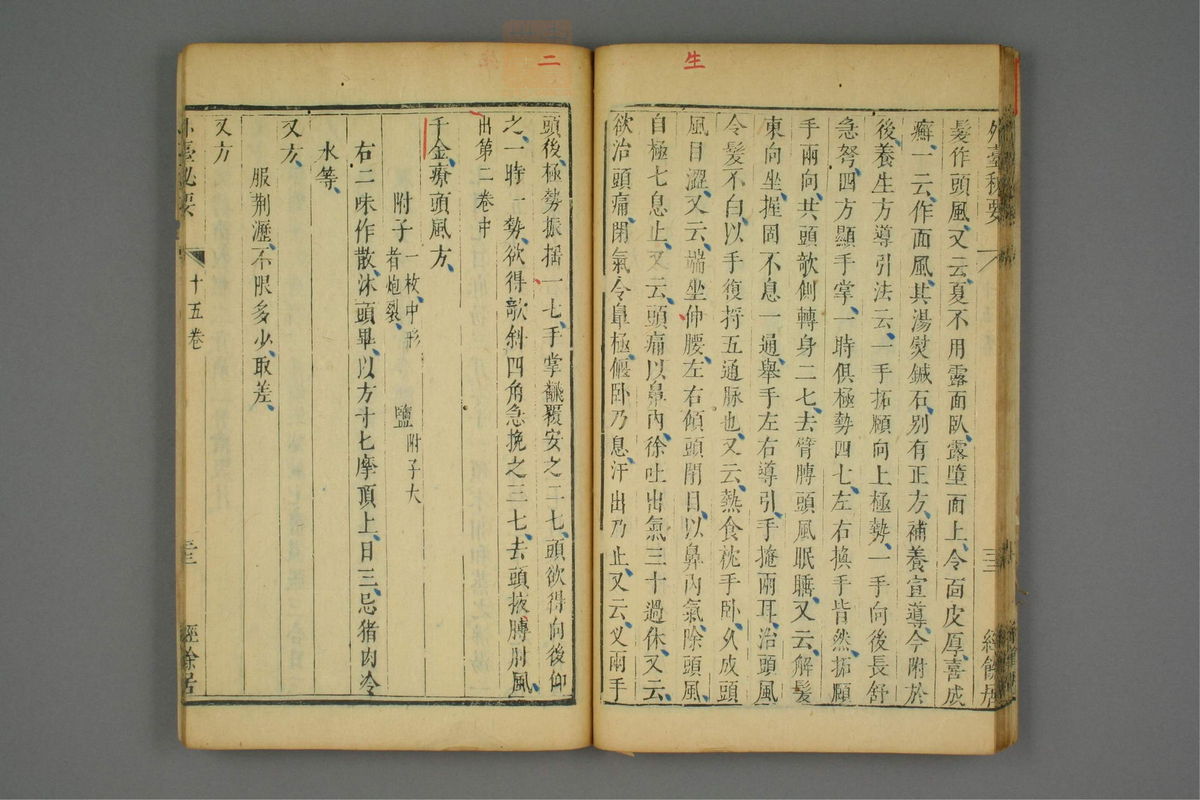 生
外臺秘要
經餘居
髮作頭風、又云、夏不用露面臥、露墮面上、令面皮厚、喜成
癬、一云、作面風、其湯熨鍼石、别有正方、補養宣導、今附於
後、養生方導引法云、一手拓頤向上極勢、一手向後長舒
急弩、四方顯手掌、一時俱極勢四七、左右換手皆然、拓頤
手兩向、共頭欹側轉身二七、去臂膊頭風眠睡、又云、解髮
東向坐、握固不息一通、舉手左右導引、手掩兩耳、治頭風
令髮不白、以手復捋五通脉也、又云、熱食枕手臥、久成頭
風目澀、又云、端坐伸腰、左右傾頭閉目、以鼻內氣、除頭風、
自極七息止、又云、頭痛以鼻內、徐吐出氣三十過休、又云、
欲治頭痛、閉氣令鼻極偃卧乃息、汗出乃止、又云、叉兩手
二
頭後、極勢振搖一七、手掌飜覆安之二七、頭欲得向後仰
之、一時一勢、欲得欹斜四角急挽之三七、去頭掖膊肘風、
出第二卷中
千金療頭風方、
附子一枚、中形者炮裂、 鹽附子大
右二味作散、沐頭畢、以方寸匕摩頂上、日三、忌猪肉冷
水等、
又方、
服荆瀝、不限多少、取差、
又方
外臺秘要 十五卷 經餘居